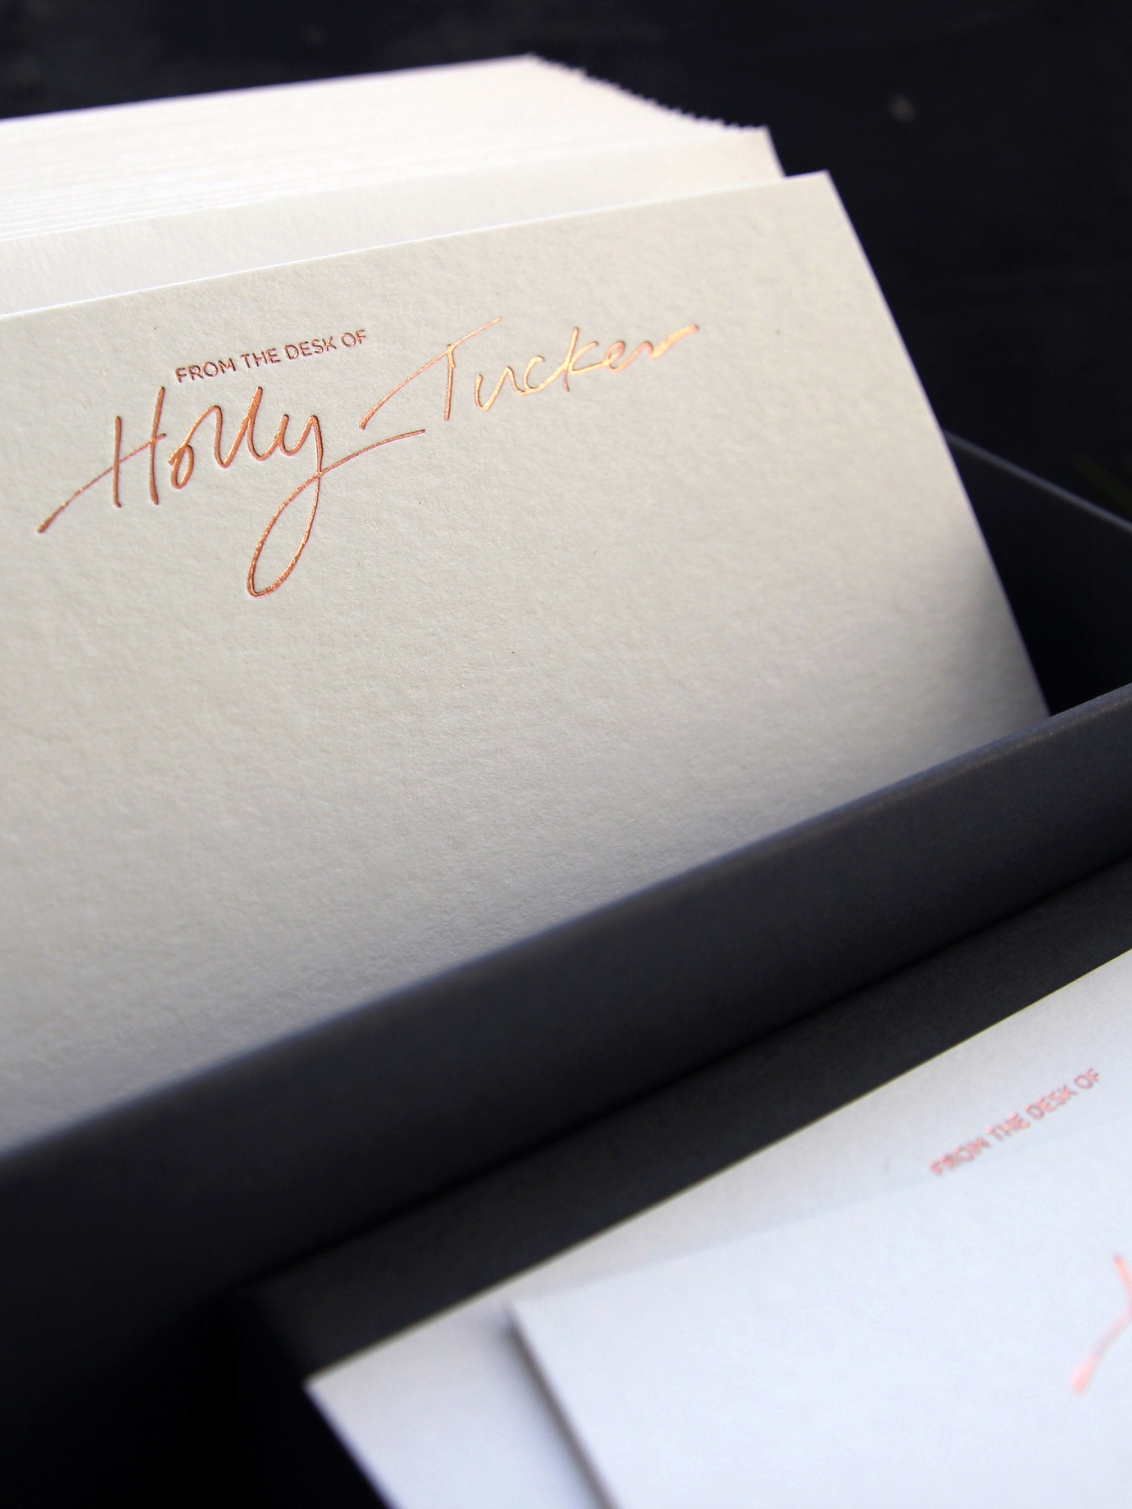 FROM THE DESK OF
Holly Tucker
FROM THE DESK OF